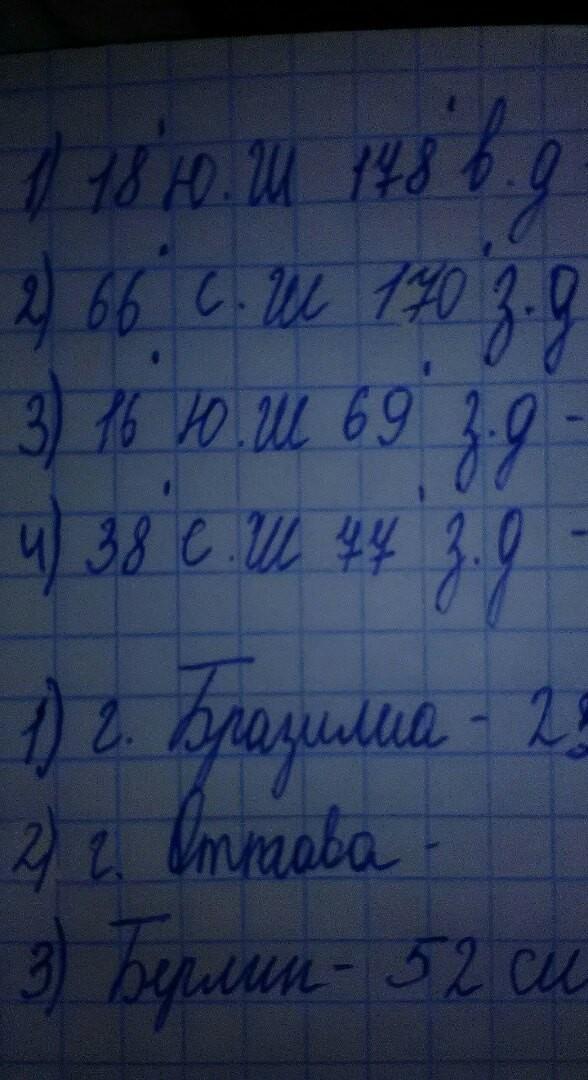 1) 18° ю.ш 178° в.д
2) 66° с.ш 170° з.д
3) 16° ю.ш 69° з.д -
4) 38° с.ш 77° з.д -
1) г. Бразилиа - 2
2) г. Оттава -
3) Берлин - 52 с